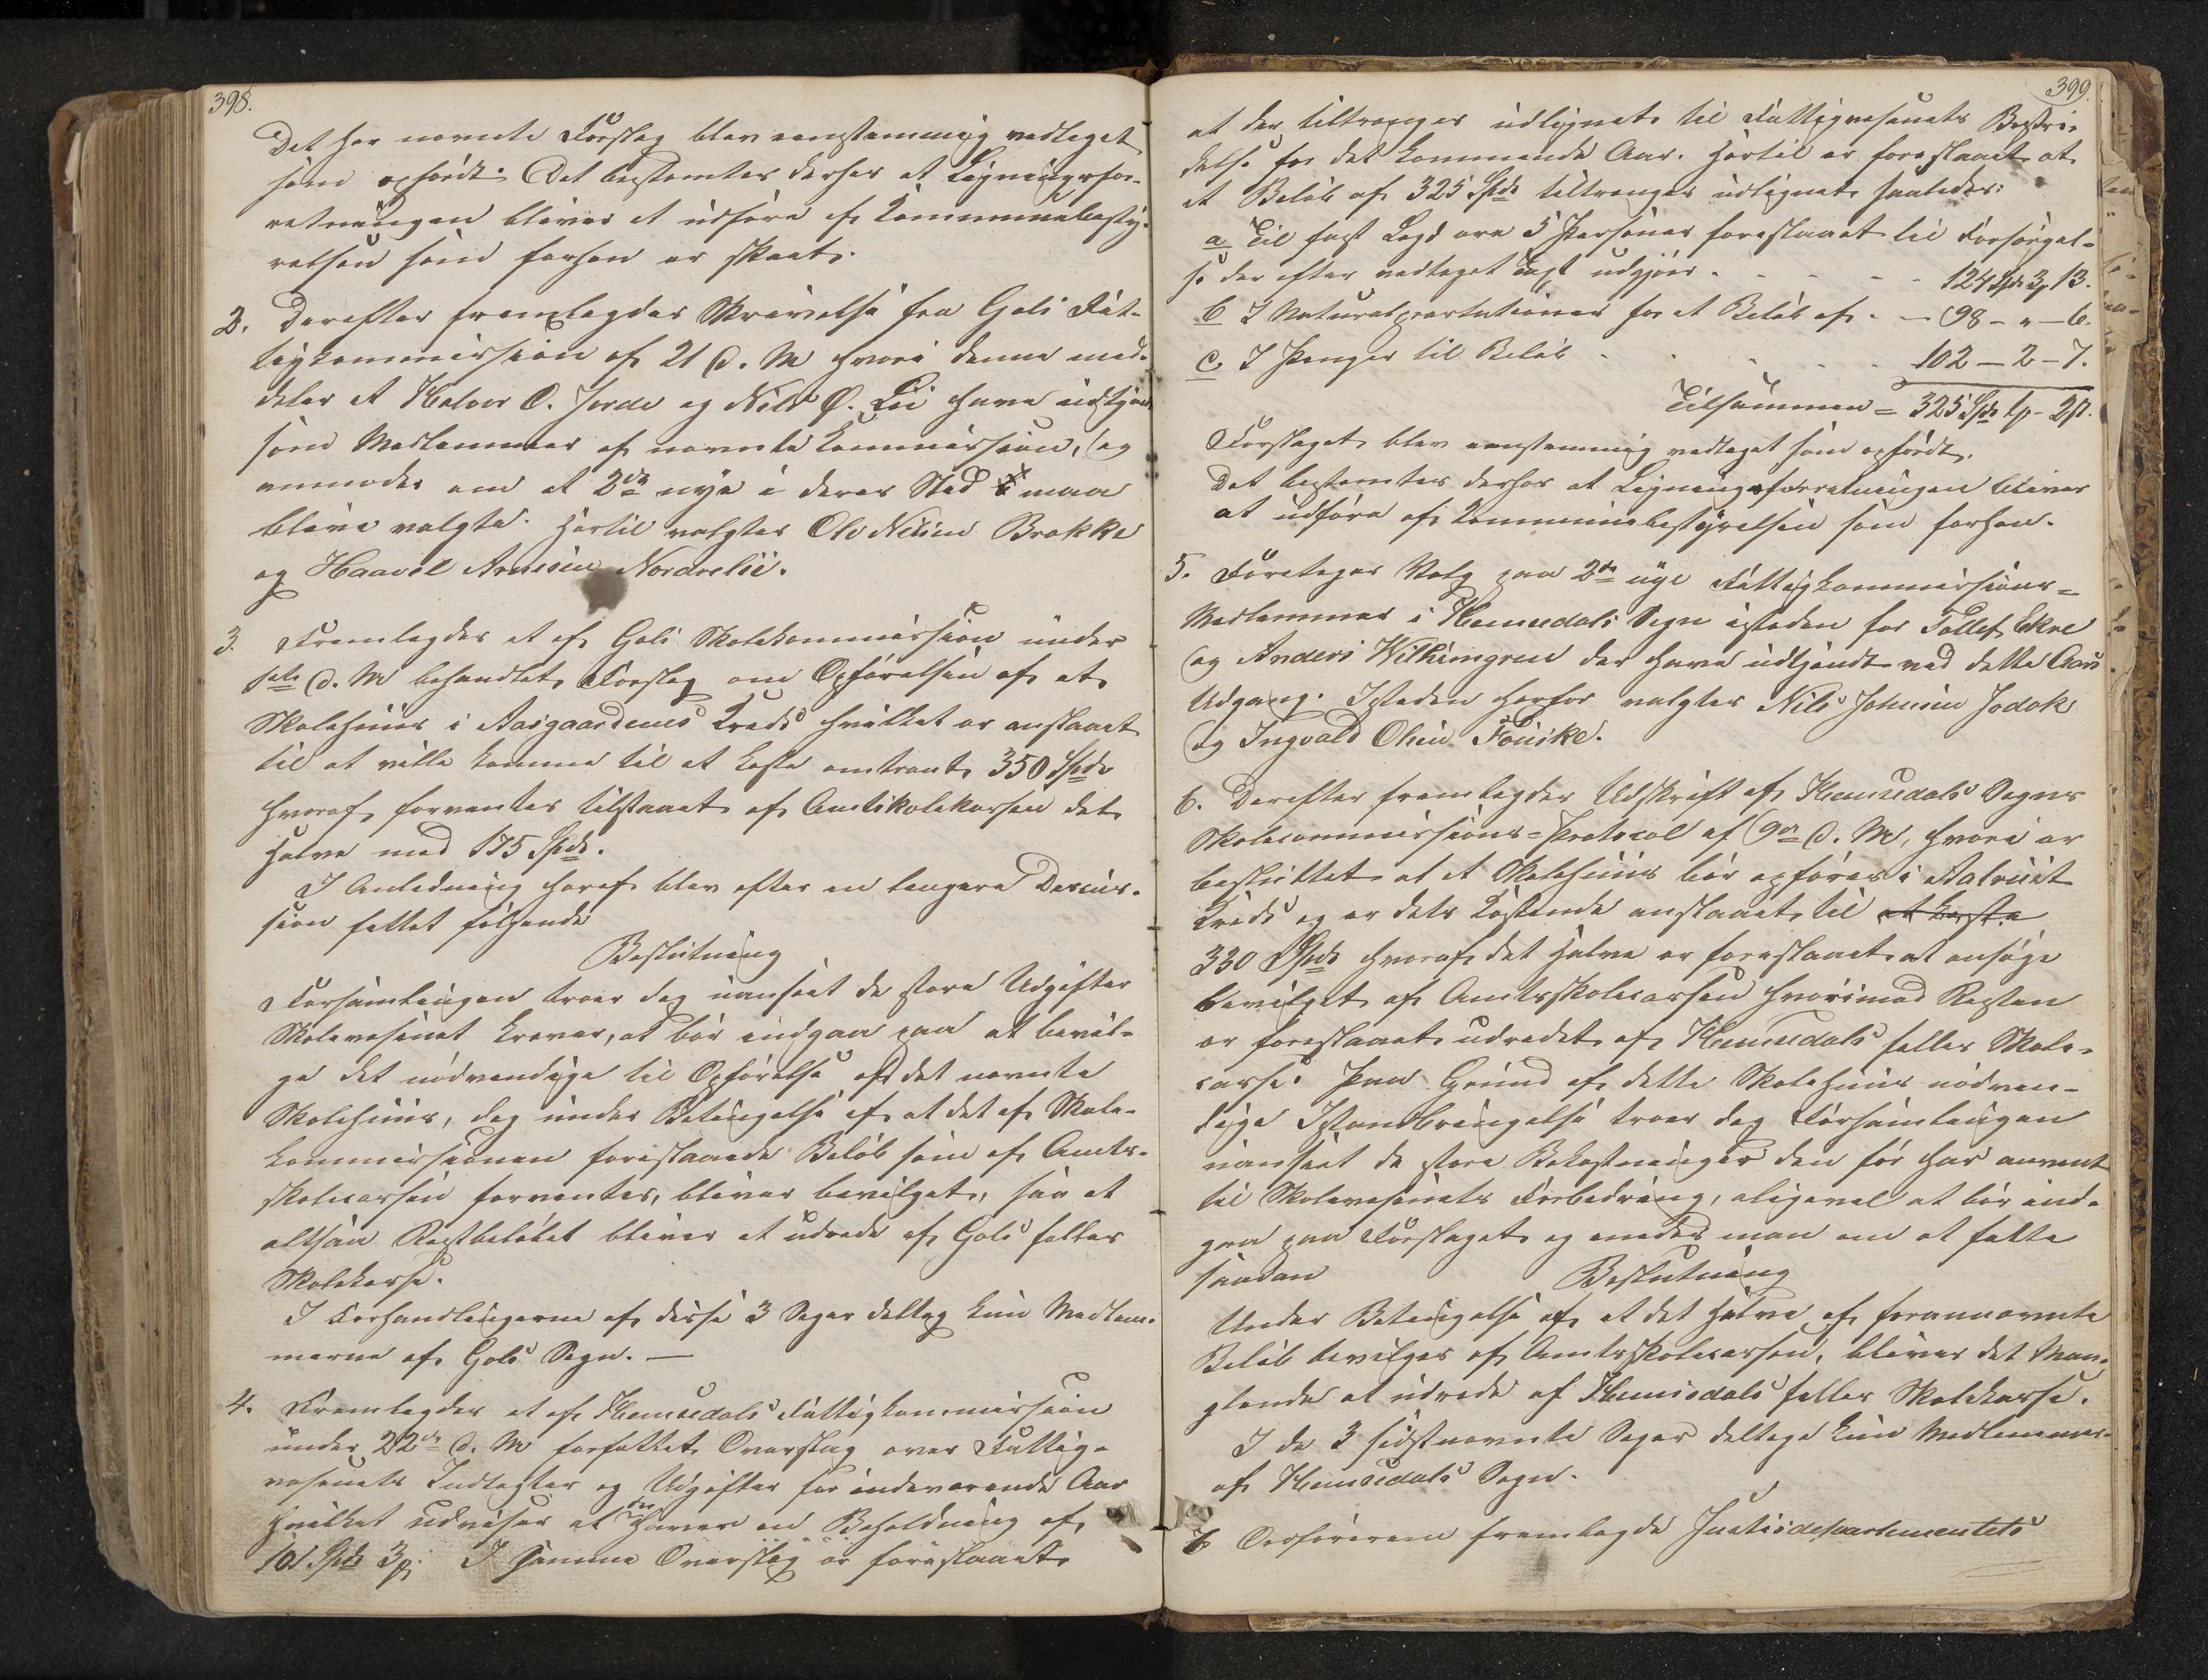 398.
Det her nævnte Forslag blev eenstemmig vedtaget
som opfördt. Det bestemtes derhos at Ligningsfor-
retningen bliver at udföre af Kommunebesty-
relsen som forhen er skeet.
2. Derefter fremlagdes Skrivelse fra Gols Fat-
tigkommission af 21 d. M hvori denne med-
deler at Halvor O. Jorde og Nils Ø. Lii have udtjent
som Medlemmer af nævnte Kommission, og
anmodes om at 2de nye i deres Sted maa
blive valgte. Hertil valgtes Ole Nilsen Brakke
og Haavel Arnesen Nordrelii.
3. Fremlagdes et af Gols Skolekommission under
d. M behandlet Forslag om Opförelsen af et
Skolehuus i Aasgaardenes Kreds hvilket er anslaaet
til at ville komme til at koste omtrent 350 Spdr
hvoraf forventes tilstaaet af Amtsskolekassen det
Halve med 175 Spdr.
I Anledning heraf blev efter en længere Discus-
sion fattet fölgende
Beslutning
Forsamlingen troer dog uanseet de store Udgifter
Skolevæsenet kræver, at bör indgaa paa at bevil-
ge det nödvendige til Opförelse af det nævnte
Skolehuus, dog under Betingelse af at det af Skole-
kommissionen foreslaaede Belöb som af Amts-
skolecassen forventes, bliver bevilget, saa at
altsaa Restbelöbet bliver at udrede af Gols fælles
Skolekasse.
I Forhandlingerne af disse 3 Sager deltog kun Medlem-
merne af Gols Sogn. —
4. Fremlagdes et af Hemsedals Fattigkommission
under 22de d. M forfattet Overslag over Fattig-
væsenets Indtægter og Udgifter for indeværende Aar
hvilket udviser at der haves en Beholdning af
101 Spdr 3 I samme Overslag er foreslaaet
399.
at der tiltrænges udlignet til Fattigvæsenets Bestri-
delse for det kommende Aar. Hertil er foreslaaet at
et Belöb af 325 Spdr tiltrænges udlignet saaledes:
a Til fast Lægd ere 5 Personer foreslaaet til Forsörgel-
se der efter vedtaget Taxt udgjör - - - - 124 Spdr 3 13.
b I Naturalpræstationer for et Belöb af - - 98 - " - 6.
c. I Penger til Belöb - - - - 102 - 2 - 7.
Tilsammen = 325 Spdr 1 - 2
Forslaget blev eenstemmig vedtaget som opfördt.
Det bestemtes derhos at Ligningsforretningen bliver
at udföre af Kommunebestyrelsen som forhen.
5. Foretages Valg paa 2de nye Fattigkommissions-
Medlemmer i Hemsedals Sogn isteden for Tollef Ekre
og Anders Wilhimgren der have udtjendt ved dette Aars
Udgang. Isteden herfor valgtes Nils Johnsen Jodok
og Ingvald Olsen Fouske.
6. Derefter fremlagdes Udskrift af Hemsedals Sogns
Skolecommissions-Protocol af 9de d. M, hvori er
besluttet at et Skolehuus bör opföres i Aalrust
Kreds og er dets Kostende anslaaet til at koste
330 Spdr hvoraf det Halve er foreslaaet at ansöge
bevilget af Amtsskolecassen hvorimod Resten
er foreslaaet udredet af Hemsedals fælles Skole-
casse. Paa Grund af dette Skolehuus nödven-
dige Istandbringelse troer dog Forsamlingen
uanseet de store Bekostninger den för har anvent
til Skolevæsenets Forbedring, aligevel at bör ind-
gaa paa Forslaget og enedes man om at fatte
saadan Beslutning
Under Betingelse af at det Halve af forannævnte
Belöb bevilges af Amtsskolecassen, bliver det Man-
glende at udrede af Hemsedals fælles Skolekasse.
I de 3 sidstnævnte Sager deltoge kun Medlemmer-
af Hemsedals Sogn.
6 Ordföreren fremlagde Justisdepartementets